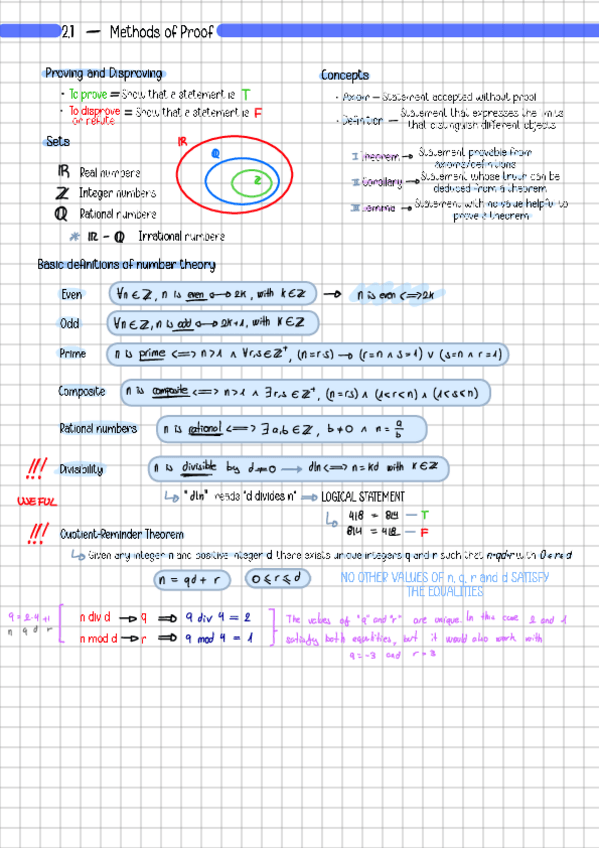 2.1 — Methods of Proof
Proving and Disproving
· To prove = Show that a statement is T
· To disprove or refute = Show that a statement is F
Concepts
· Axiom — Statement accepted without proof
· Definition — Statement that expresses the limits that distinguish different objects
Theorem → Statement provable from axioms/definitions
Corollary → Statement whose truth can be deduced from a theorem
Lemma → Statement with no value helpful to prove a theorem
Sets
ℝ Real numbers
ℤ Integer numbers
ℚ Rational numbers
* ℝ - ℚ Irrational numbers
ℝ
ℚ
ℤ
Basic definitions of number theory
Even ∀n ∈ ℤ, n is even ⟷ 2k, with k ∈ ℤ → n is even <=> 2k
Odd ∀n ∈ ℤ, n is odd ⟷ 2k+1, with k ∈ ℤ
Prime n is prime <=> n>1 ∧ ∀r,s ∈ ℤ⁺, (n=r·s) → (r=n ∧ s=1) ∨ (s=n ∧ r=1)
Composite n is composite <=> n>1 ∧ ∃r,s ∈ ℤ⁺, (n=r·s) ∧ (1<r<n) ∧ (1<s<n)
Rational numbers n is rational <=> ∃a,b ∈ ℤ, b≠0 ∧ n = a/b
!!! Divisibility n is divisible by d≠0 → d|n <=> n=kd with k ∈ ℤ
USEFUL
↳ "d|n" reads "d divides n" → LOGICAL STATEMENT
↳ 4|8 = 8|4 — T
8|4 = 4|8 — F
!!! Quotient-Reminder Theorem
↳ Given any integer n and positive integer d, there exists unique integers q and r such that n=qd+r with 0≤r≤d
n = qd + r 0 ≤ r ≤ d
NO OTHER VALUES OF n, q, r and d SATISFY
THE EQUALITIES
9 = 2·4+1
n q d r
n div d → q ⟹ 9 div 4 = 2
n mod d → r ⟹ 9 mod 4 = 1
The values of "q" and "r" are unique. In this case 2 and 1
satisfy both equalities, but it would also work with
q = -3 and r = 3